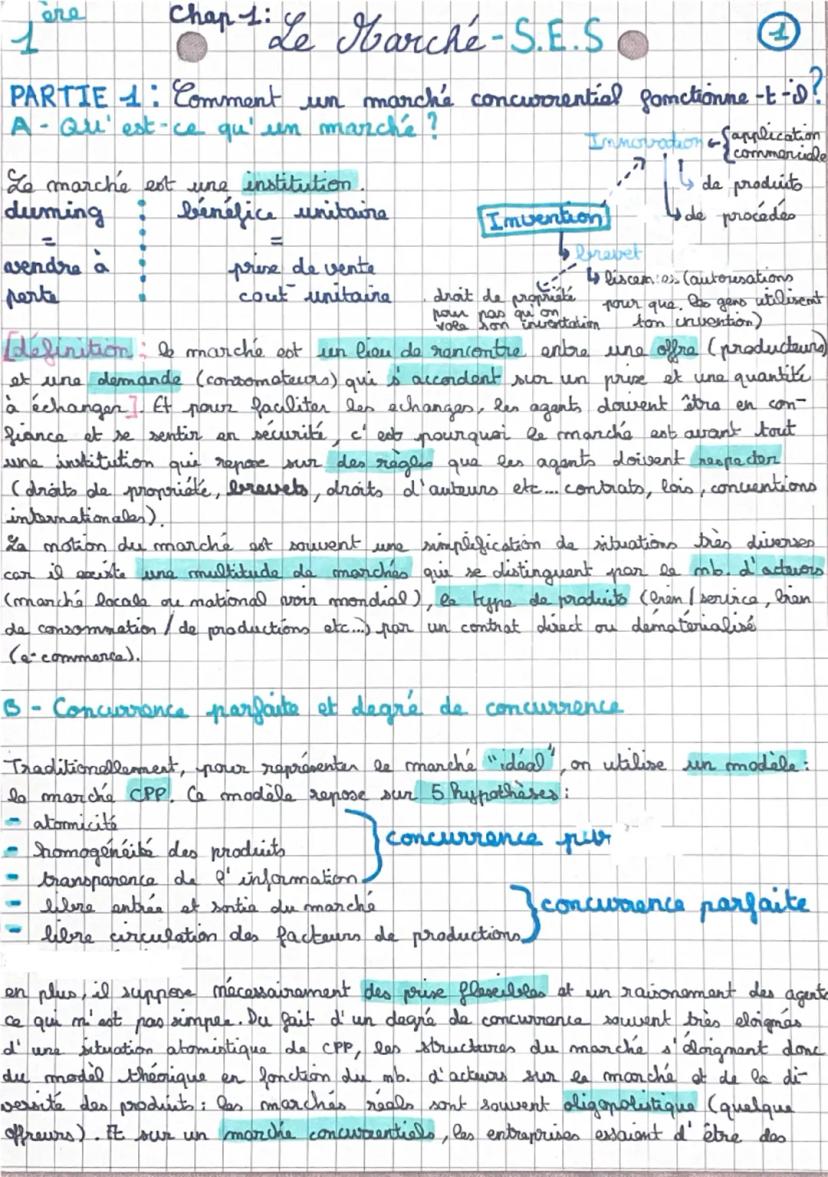 1ère Chap 1: Le Marché - S.E.S 1
PARTIE 1 : Comment un marché concurrentiel fonctionne-t-il?
A - Qu'est-ce qu'un marché ?
Innovation ← { application commerciale
↳ de produits
↳ de procédés
Le marché est une institution.
duming = vendre à perte
bénéfice unitaire = prixe de vente cout unitaire
Invention
↳ brevet
droit de propriété pour pas qu'on vole son inventation
↳ (autorisations pour que les gens utilisent ton invention)
[définition : le marché est un lieu de rencontre entre une offre (producteurs)
et une demande (consomateurs) qui s'accordent sur un prixe et une quantité
à échanger]. Et pour faciliter les echanges, les agents doivent être en con-
fiance et se sentir en sécurité, c'est pourquoi le marché est avant tout
une institution qui repose sur des règles que les agents doivent respecter
(droits de propriété, brevets, droits d'auteurs etc... contrats, lois, conventions
internationales).
La notion du marché est souvent une simplification de situations très diverses
car il existe une multitude de marchés qui se distinguent par le nb. d'acteurs
(marché locale ou national voir mondial), le type de produits (bien / service, bien
de consommation / de productions etc...) par un contrat direct ou dématérialisé
(e-commerce).
B - Concurrence parfaite et degré de concurrence
Traditionellement, pour représenter le marché "idéal", on utilise un modèle :
le marché CPP. Ce modèle repose sur 5 hypothèses :
- atomicité
- homogénéité des produits
- transparence de l'information
} concurrence pur
- libre entrée et sortie du marché
- libre circulation des facteurs de productions
} concurrence parfaite
en plus, il suppose nécessairement des prixe flexibles et un raisonement des agents
ce qui n'est pas simple. Du fait d'un degré de concurrence souvent très eloignés
d'une situation atomistique de CPP, les structures du marché s'éloignent donc
du modèl théorique en fonction du nb. d'acteurs sur le marché et de la di-
versité des produits : les marchés réels sont souvent oligopolistique (quelque
offreurs). Et sur un marché concurrentiels, les entreprises essaient d'être des